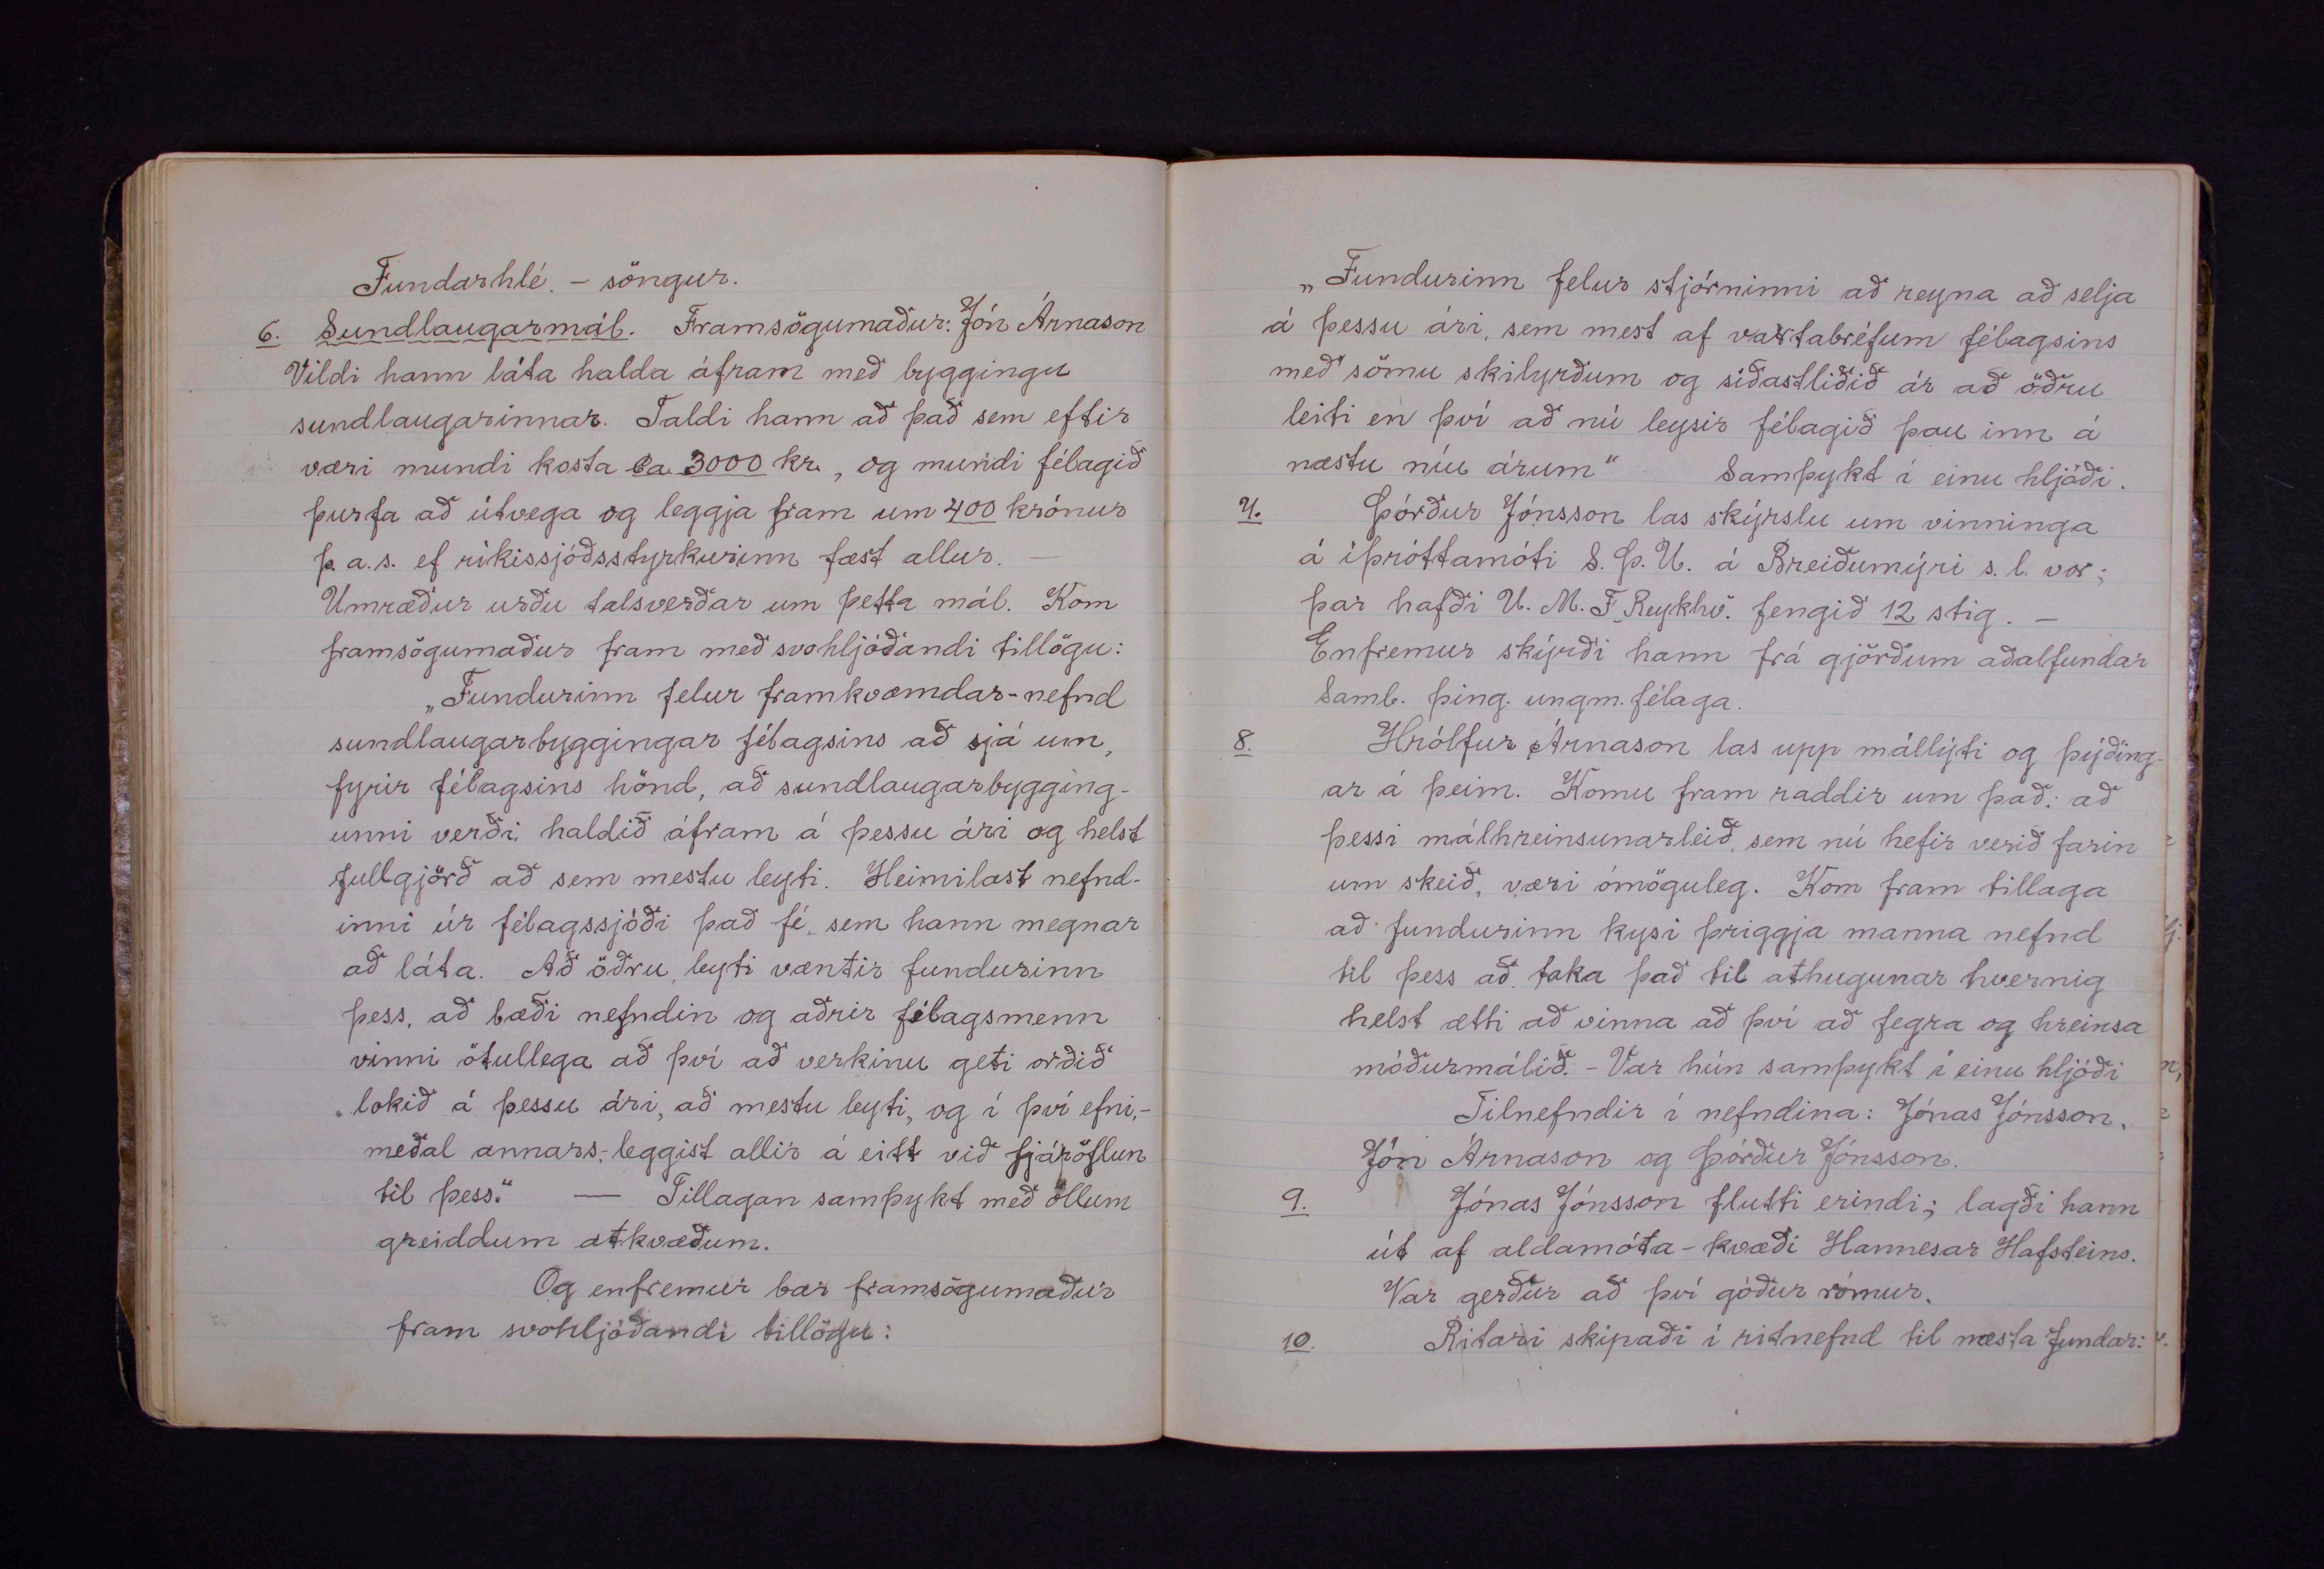 Fundarhlé. – söngur.
6. Sundlaugarmál. Framsögumaður: Jón Árnason
Vildi hann láta halda áfram með byggingu
sundlaugarinnar. Taldi hann að það sem eftir
væri mundi kosta ca. 3000 kr., og mundi félagið
þurfa að útvega og leggja fram um 400 krónur
þ. a. s. ef ríkissjóðsstyrkurinn fæst allur. —
Umræður urðu talsverðar um þetta mál. Kom
framsögumaður fram með svohljóðandi tillögu:
„Fundurinn felur framkvæmdar-nefnd
sundlaugarbyggingar félagsins að sjá um,
fyrir félagsins hönd, að sundlaugarbygging-
unni verði haldið áfram á þessu ári og helst
fullgjörð að sem mestu leyti. Heimilast nefnd-
inni úr félagssjóði það fé, sem hann megnar
að láta. Að öðru leyti væntir fundurinn
þess, að bæði nefndin og aðrir félagsmenn
vinni ötullega að því að verkinu geti orðið
lokið á þessu ári, að mestu leyti, og í því efni,-
meðal annars,- leggist allir á eitt við fjáröflun
til þess." — Tillagan samþykt með öllum
greiddum atkvæðum.
Og enfremur bar framsögumaður
fram svohljóðandi tillögu:
„Fundurinn felur stjórninni að reyna að selja
á þessu ári, sem mest af vaxtabréfum félagsins
með sömu skilyrðum og síðastliðið ár að öðru
leiti en því að nú leysir félagið þau inn á
næstu níu árum" Samþykt í einu hljóði.
7. Þórður Jónsson las skýrslu um vinninga
á íþróttamóti S. Þ. U. á Breiðumýri s. l. vor;
þar hafði U. M. F. Reykhv. fengið 12 stig. —
Enfremur skýrði hann frá gjörðum aðalfundar
Samb. þing. ungm. félaga.
8. Hrólfur Árnason las upp mállýti og þýðing-
ar á þeim. Komu fram raddir um það, að
þessi málhreinsunarleið, sem nú hefir verið farin
um skeið, væri ómöguleg. Kom fram tillaga
að fundurinn kysi þriggja manna nefnd
til þess að taka það til athugunar hvernig
helst ætti að vinna að því að fegra og hreinsa
móðurmálið. – Var hún samþykt í einu hljóði
Tilnefndir í nefndina: Jónas Jónsson,
Jón Árnason og Þórður Jónsson.
9. Jónas Jónsson flutti erindi; lagði hann
út af aldamóta-kvæði Hannesar Hafsteins.
Var gerður að því góður rómur.
10. Ritari skipaði í ritnefnd til næsta fundar: